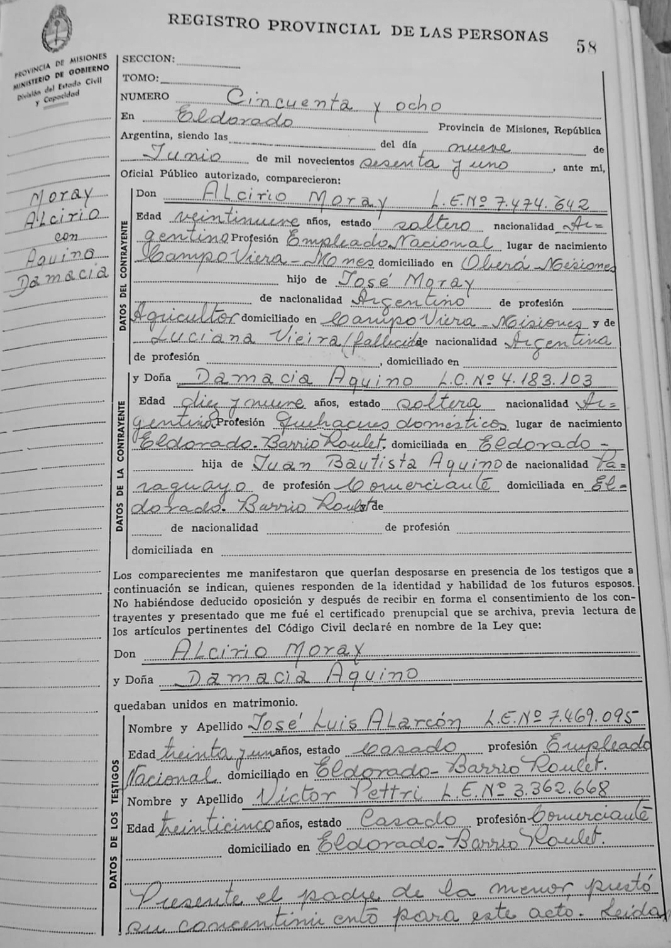 REGISTRO PROVINCIAL DE LAS PERSONAS
58
PROVINCIA DE MISIONES
MINISTERIO DE GOBIERNO
División del Estado Civil
y Capacidad
SECCION:
TOMO:
NUMERO Cincuenta y ocho
En Eldorado Provincia de Misiones, República
Argentina, siendo las del día, nueve de
Junio de mil novecientos sesenta y uno, ante mí,
Oficial Público autorizado, comparecieron:
Moray
Alcirio
con
Aquino
Damacia
DATOS DEL CONTRAYENTE
Don Alcirio Moray L.E.Nº 7.474.642
Edad veintinueve años, estado soltero nacionalidad Ar=
gentino Profesión Empleado Nacional lugar de nacimiento
Campo Viera - Mnes domiciliado en Oberá - Misiones
hijo de José Moray
de nacionalidad Argentino de profesión
Agricultor domiciliado en Campo Viera - Misiones y de
Luciana Vieira (fallecida de nacionalidad Argentina
de profesión , domiciliado en
DATOS DE LA CONTRAYENTE
y Doña Damacia Aquino L.C.Nº 4.183.103
Edad diez y nueve años, estado soltera nacionalidad Ar-
gentina Profesión Quehaceres domésticos lugar de nacimiento
Eldorado. Barrio Roulet. domiciliada en Eldorado -
hija de Juan Bautista Aquino de nacionalidad Pa=
raguayo de profesión Comerciante domiciliada en El-
dorado. Barrio Roulet de
de nacionalidad de profesión
domiciliada en
Los comparecientes me manifestaron que querían desposarse en presencia de los testigos que a
continuación se indican, quienes responden de la identidad y habilidad de los futuros esposos.
No habiéndose deducido oposición y después de recibir en forma el consentimiento de los con-
trayentes y presentado que me fué el certificado prenupcial que se archiva, previa lectura de
los artículos pertinentes del Código Civil declaré en nombre de la Ley que:
Don Alcirio Moray
y Doña Damacia Aquino
quedaban unidos en matrimonio.
DATOS DE LOS TESTIGOS
Nombre y Apellido José Luis Alarcón L.E.Nº 7.469.095
Edad treinta y un años, estado Casado profesión Empleado
Nacional domiciliado en Eldorado - Barrio Roulet.
Nombre y Apellido Victor Pettri L.E.Nº 3.362.668
Edad treinticinco años, estado Casado profesión Comerciante
domiciliado en Eldorado - Barrio Roulet.
Presente el padre de la menor prestó
su concentimiento para este acto. Leida